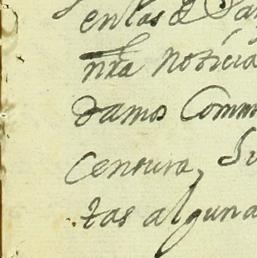 en las d
nra noticia
damos Comm
censura, Su
tas alguna